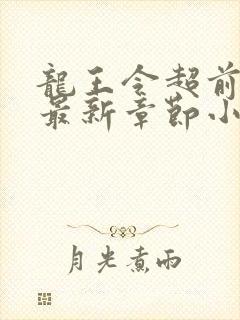 龍王令超前
最新章節小
月光煮雨